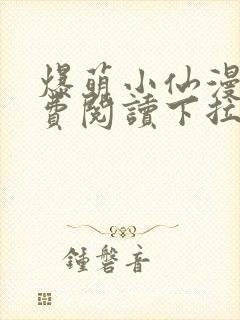 爆萌小仙漫
費閱讀下拉
鍾磬音